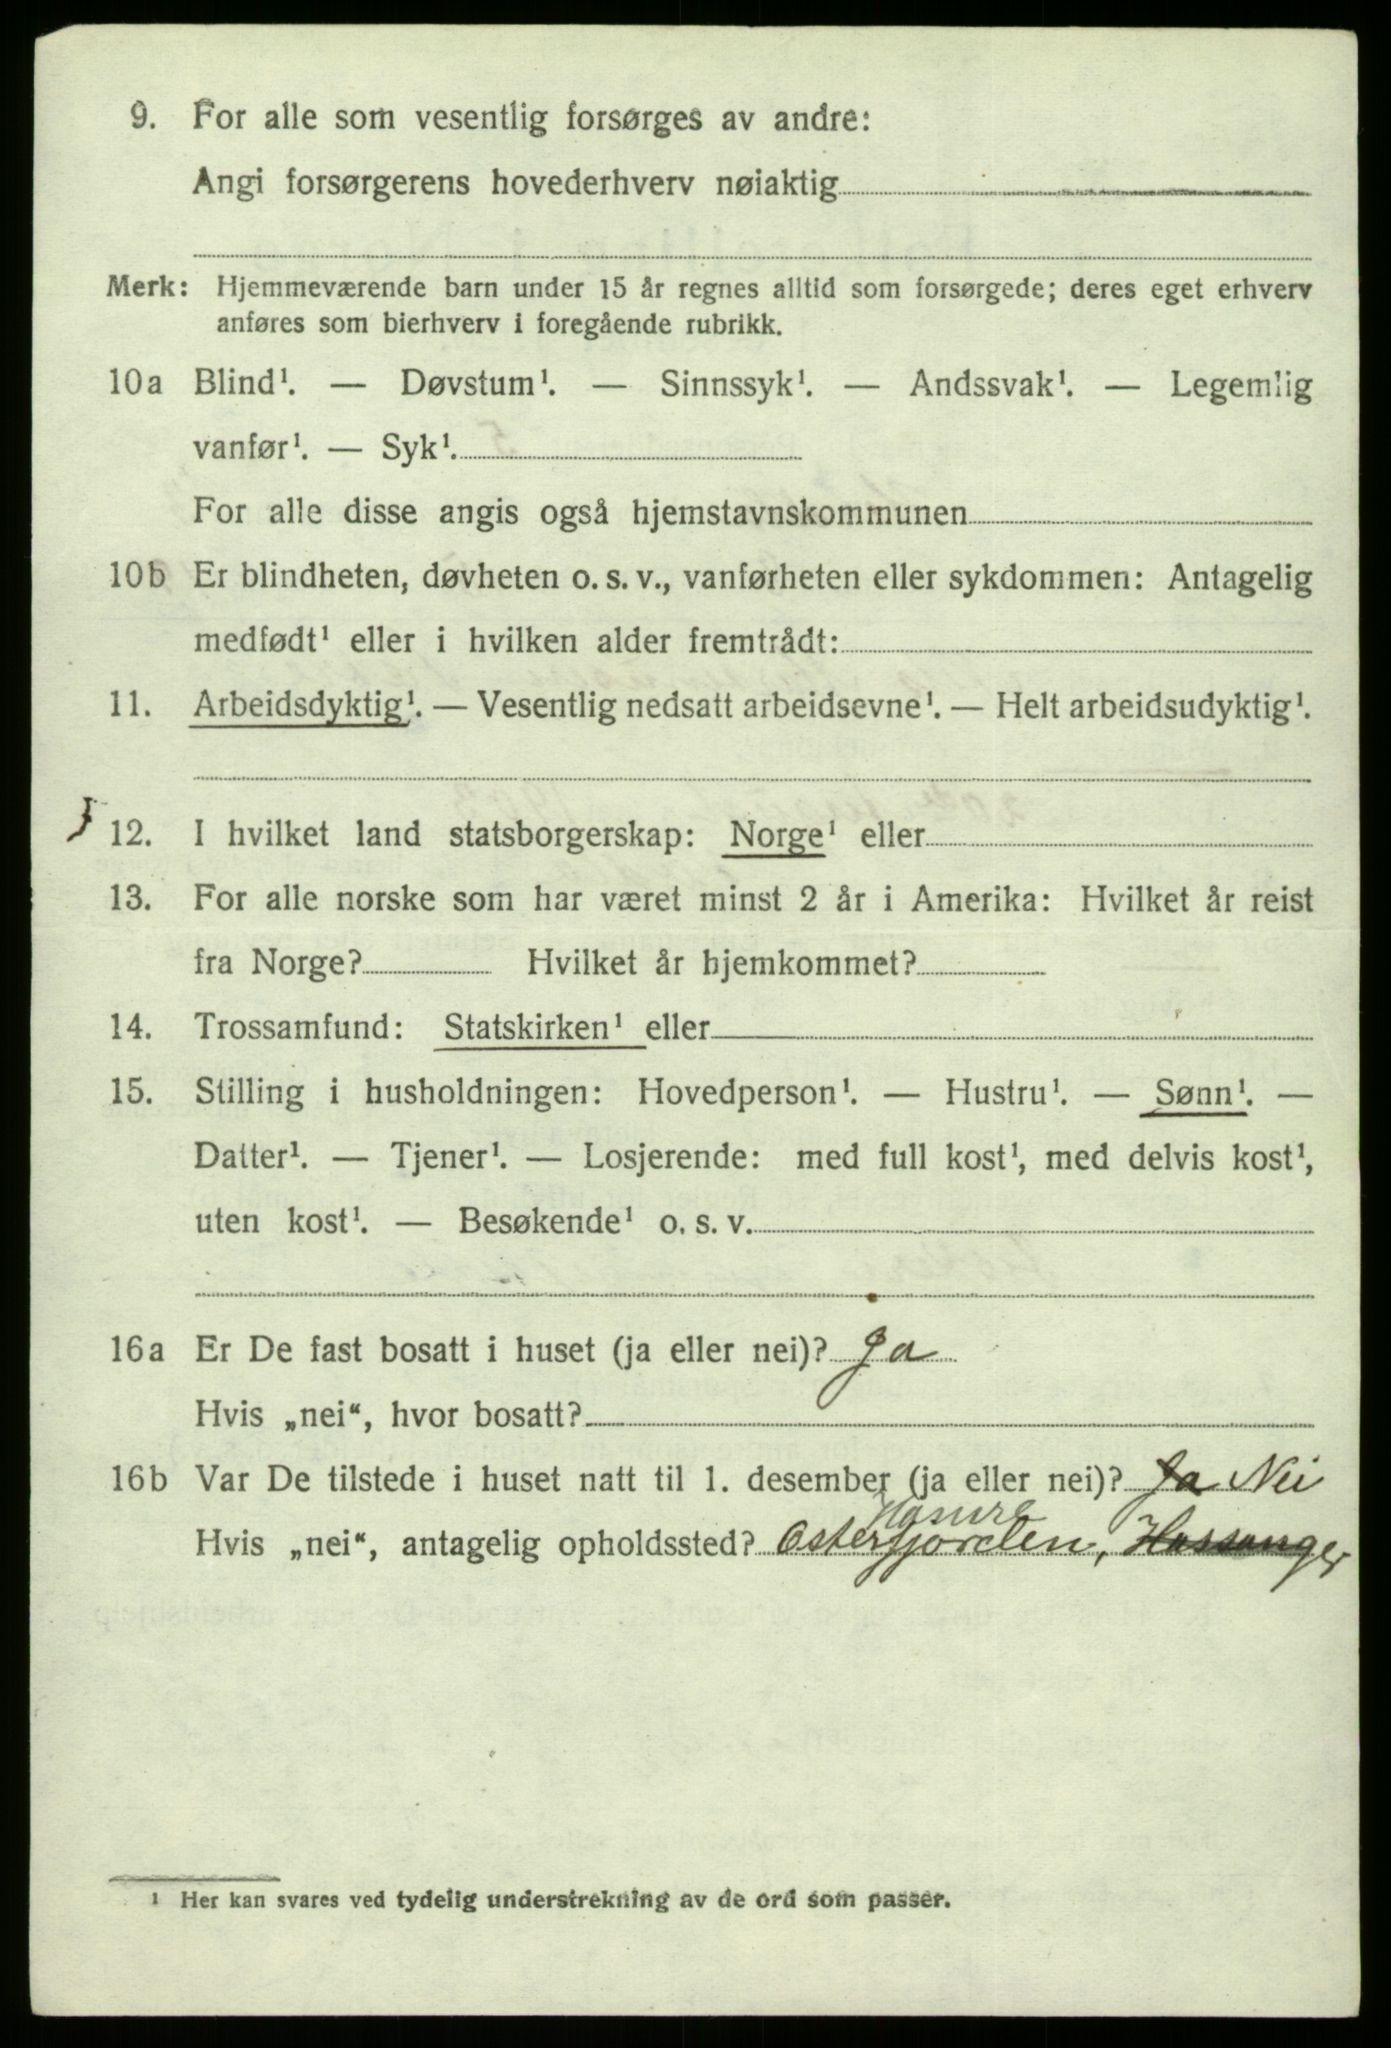 9. For alle som vesentlig forsørges av andre:
Angi forsørgerens hovederhverv nøiaktig
Merk: Hjemmeværende barn under 15 år regnes alltid som forsørgede; deres eget erhverv
anføres som bierhverv i foregående rubrikk.
10a Blind¹. — Døvstum¹. — Sinnssyk¹. — Andssvak¹. — Legemlig
vanfør¹. — Syk¹.
For alle disse angis også hjemstavnskommunen
10b Er blindheten, døvheten o. s. v., vanførheten eller sykdommen: Antagelig
medfødt¹ eller i hvilken alder fremtrådt:
11. Arbeidsdyktig¹. — Vesentlig nedsatt arbeidsevne¹. — Helt arbeidsudyktig¹.
12. I hvilket land statsborgerskap: Norge¹ eller
13. For alle norske som har været minst 2 år i Amerika: Hvilket år reist
fra Norge? Hvilket år hjemkommet?
14. Trossamfund: Statskirken¹ eller
15. Stilling i husholdningen: Hovedperson¹. — Hustru¹. — Sønn¹. —
Datter¹. — Tjener¹. — Losjerende: med full kost¹, med delvis kost¹,
uten kost¹. — Besøkende¹ o. s. v.
16a Er De fast bosatt i huset (ja eller nei)? Ja
Hvis „nei“, hvor bosatt?
16b Var De tilstede i huset natt til 1. desember (ja eller nei)? Ja Nei
Hvis „nei“, antagelig opholdssted? Osterfjorden,
¹ Her kan svares ved tydelig understrekning av de ord som passer.